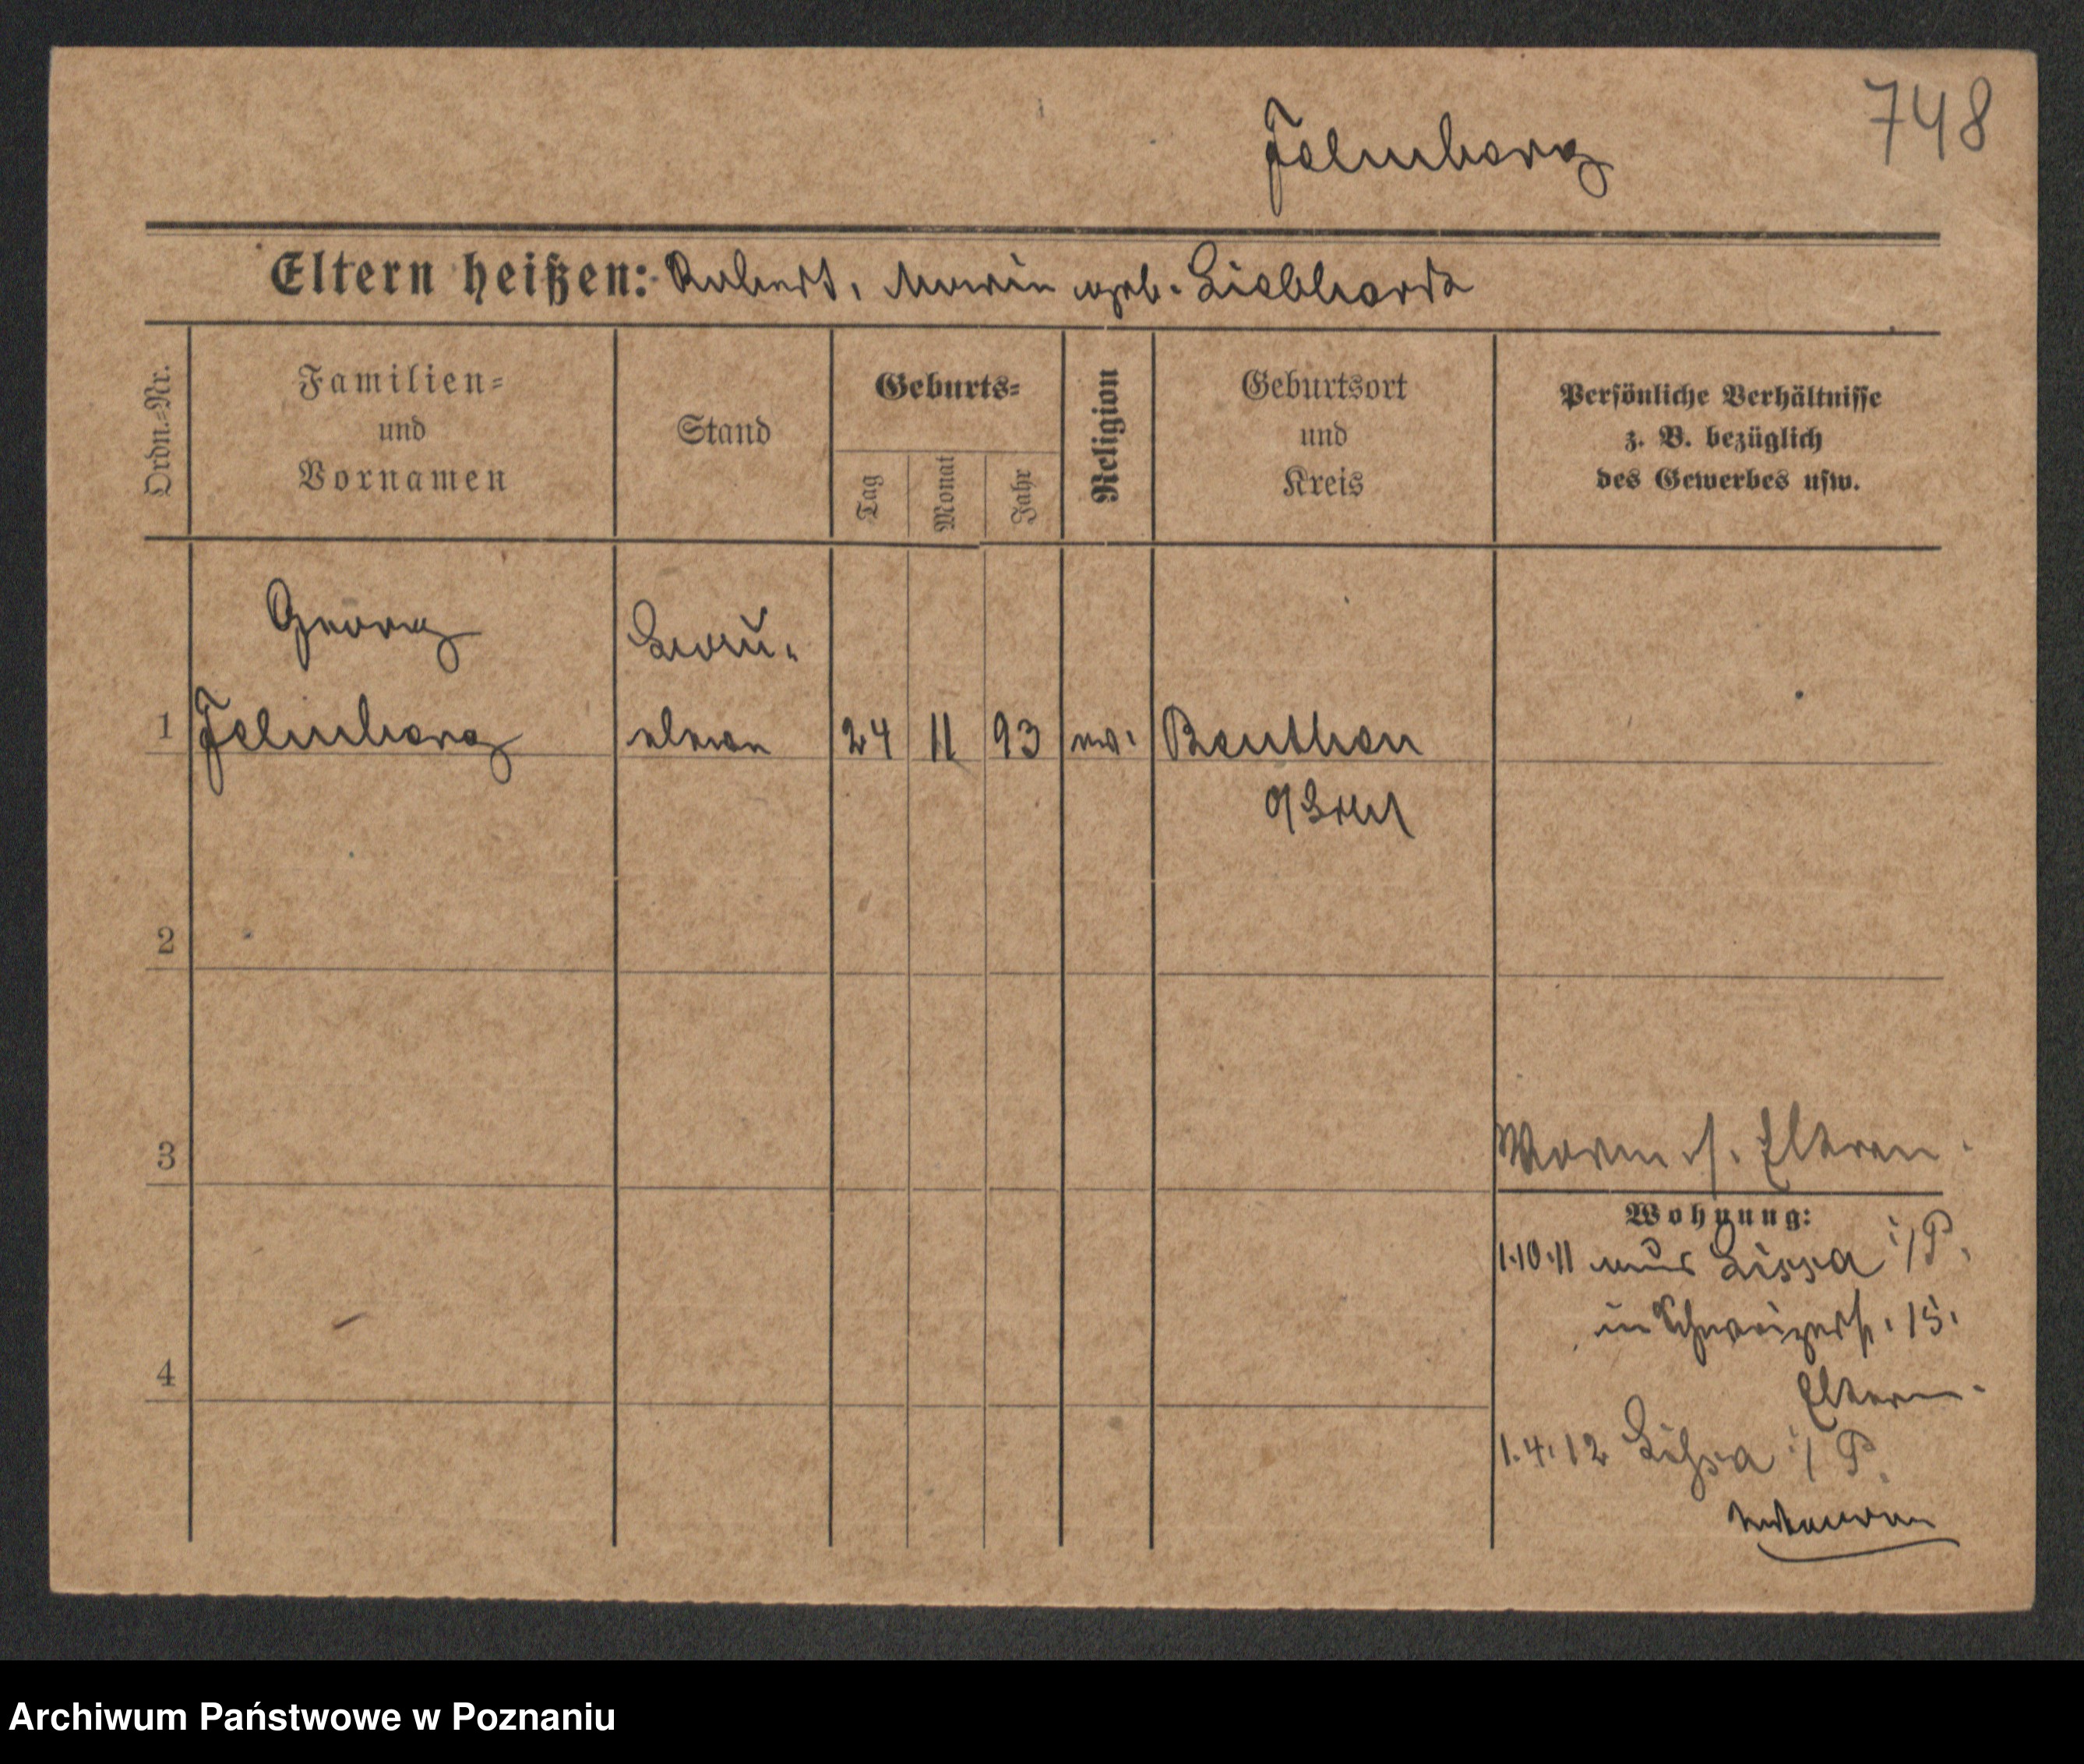 748
Felmberg
Eltern heißen: Robert, Maria geb.
Ordn.=Nr.
Familien=
und
Vornamen
Stand
Geburts=
Tag
Monat
Jahr
Religion
Geburtsort
und
Kreis
Persönliche Verhältnisse
z. B. bezüglich
des Gewerbes usw.
Georg
1 Felmberg 24 11 93 ev. Beuthen
2
3
s. Eltern.
Wohnung:
1.10.11 aus Lissa i/P.
in Schweizerstr. 15.
4
Eltern.
1.4.12 Lissa i/P.
Archiwum Państwowe w Poznaniu